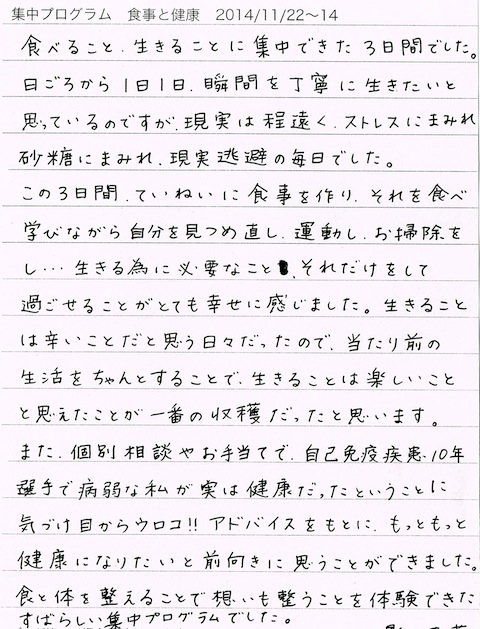 集中プログラム　食事と健康　2014/11/22〜14
食べること、生きることに集中できた3日間でした。
日ごろから1日1日、瞬間を丁寧に生きたいと
思っているのですが、現実は程遠く、ストレスにまみれ
砂糖にまみれ、現実逃避の毎日でした。
この3日間、ていねいに食事を作り、それを食べ
学びながら自分を見つめ直し、運動し、お掃除を
し…生きる為に必要なこと、それだけをして
過ごせることがとても幸せに感じました。生きること
は辛いことだと思う日々だったので、当たり前の
生活をちゃんとすることで、生きることは楽しいこと
と思えたことが一番の収穫だったと思います。
また、個別相談やお手当てで、自己免疫疾患10年
選手で病弱な私が実は健康だったということに
気づけ目からウロコ!! アドバイスをもとに、もっともっと
健康になりたいと前向きに思うことができました。
食と体を整えることで想いも整うことを体験できた
すばらしい集中プログラムでした。